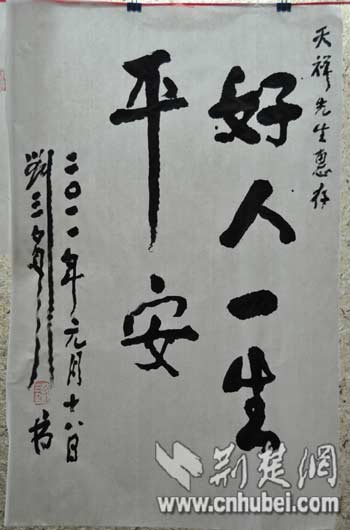 天祥先生惠存
好人一生
平安
二〇一一年元月十八日
荆楚網
www.cnhubei.com